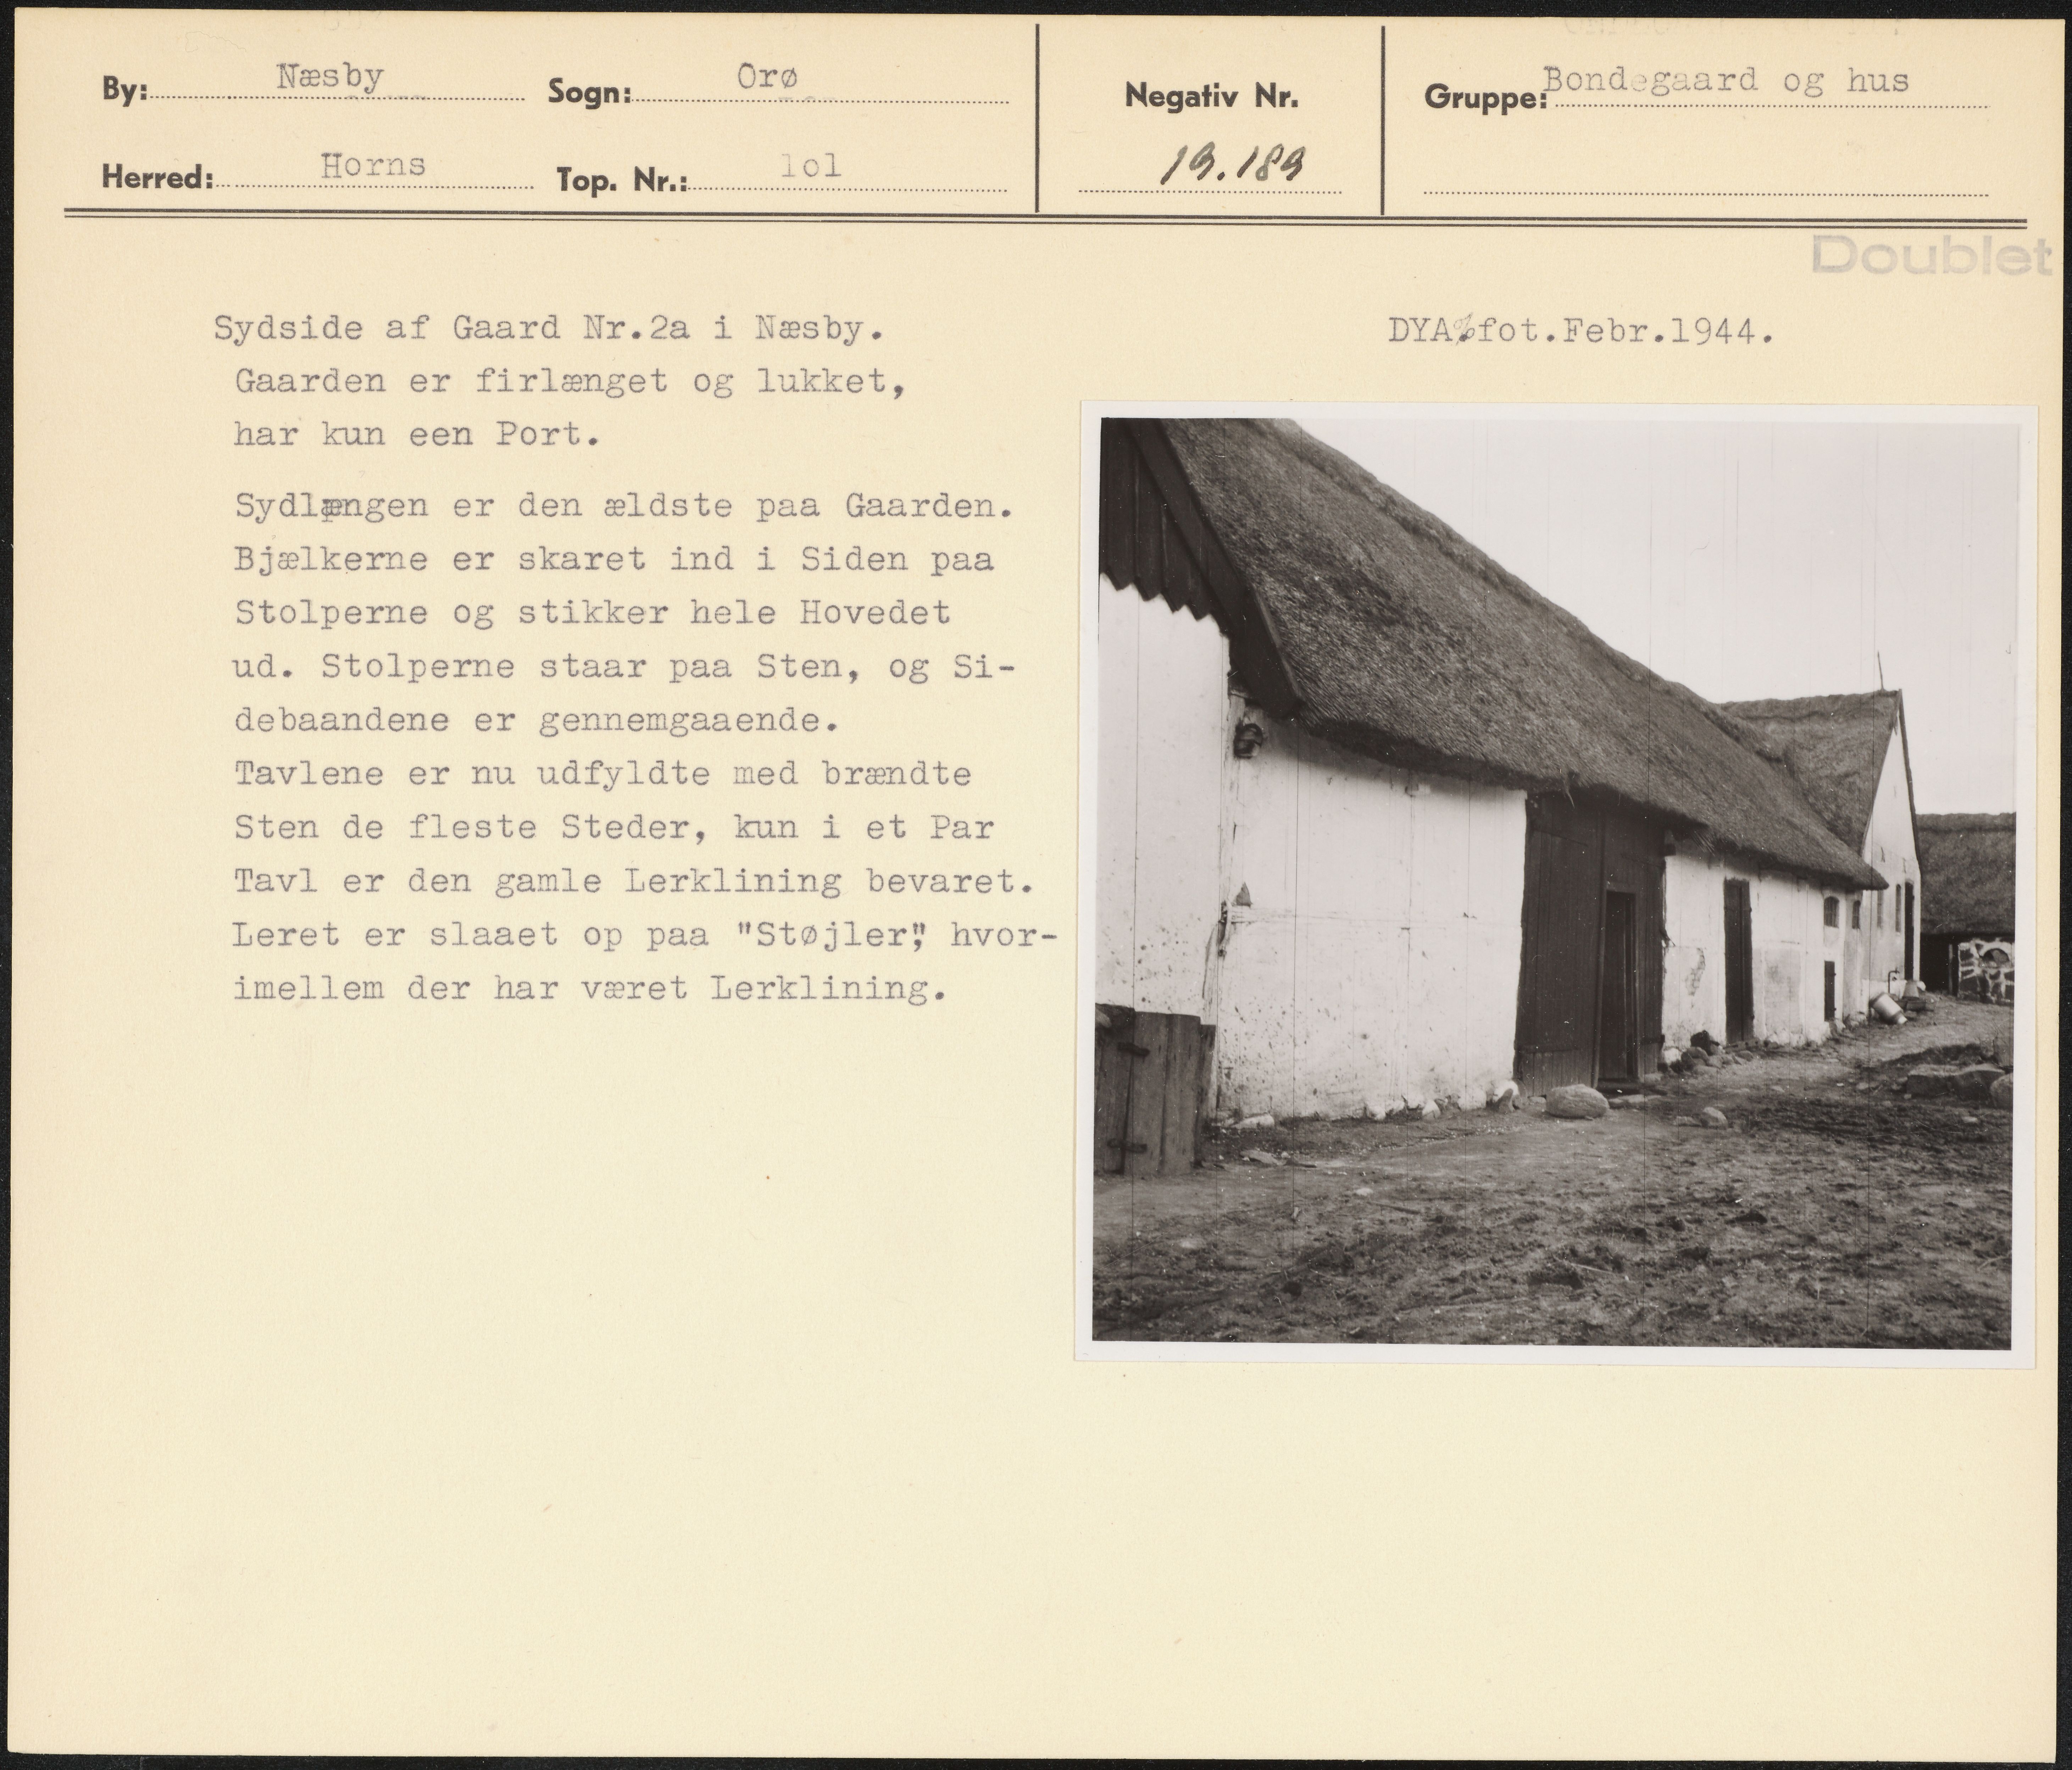 By: Næsby Sogn: Orø Negativ Nr. Gruppe: Bondegaard og hus
Herred: Horns Top. Nr.: lol 19.189
Doublet
Sydside af Gaard Nr.2a i Næsby. DYA.fot.Febr.1944.
Gaarden er firlænget og lukket,
har kun een Port.
Sydlængen er den ældste paa Gaarden.
Bjælkerne er skaret ind i Siden paa
Stolperne og stikker hele Hovedet
ud. Stolperne staar paa Sten, og Si-
debaandene er gennemgaaende.
Tavlene er nu udfyldte med brændte
Sten de fleste Steder, kun i et Par
Tavl er den gamle Lerklining bevaret.
Leret er slaaet op paa "Støjler", hvor-
imellem der har været Lerklining.